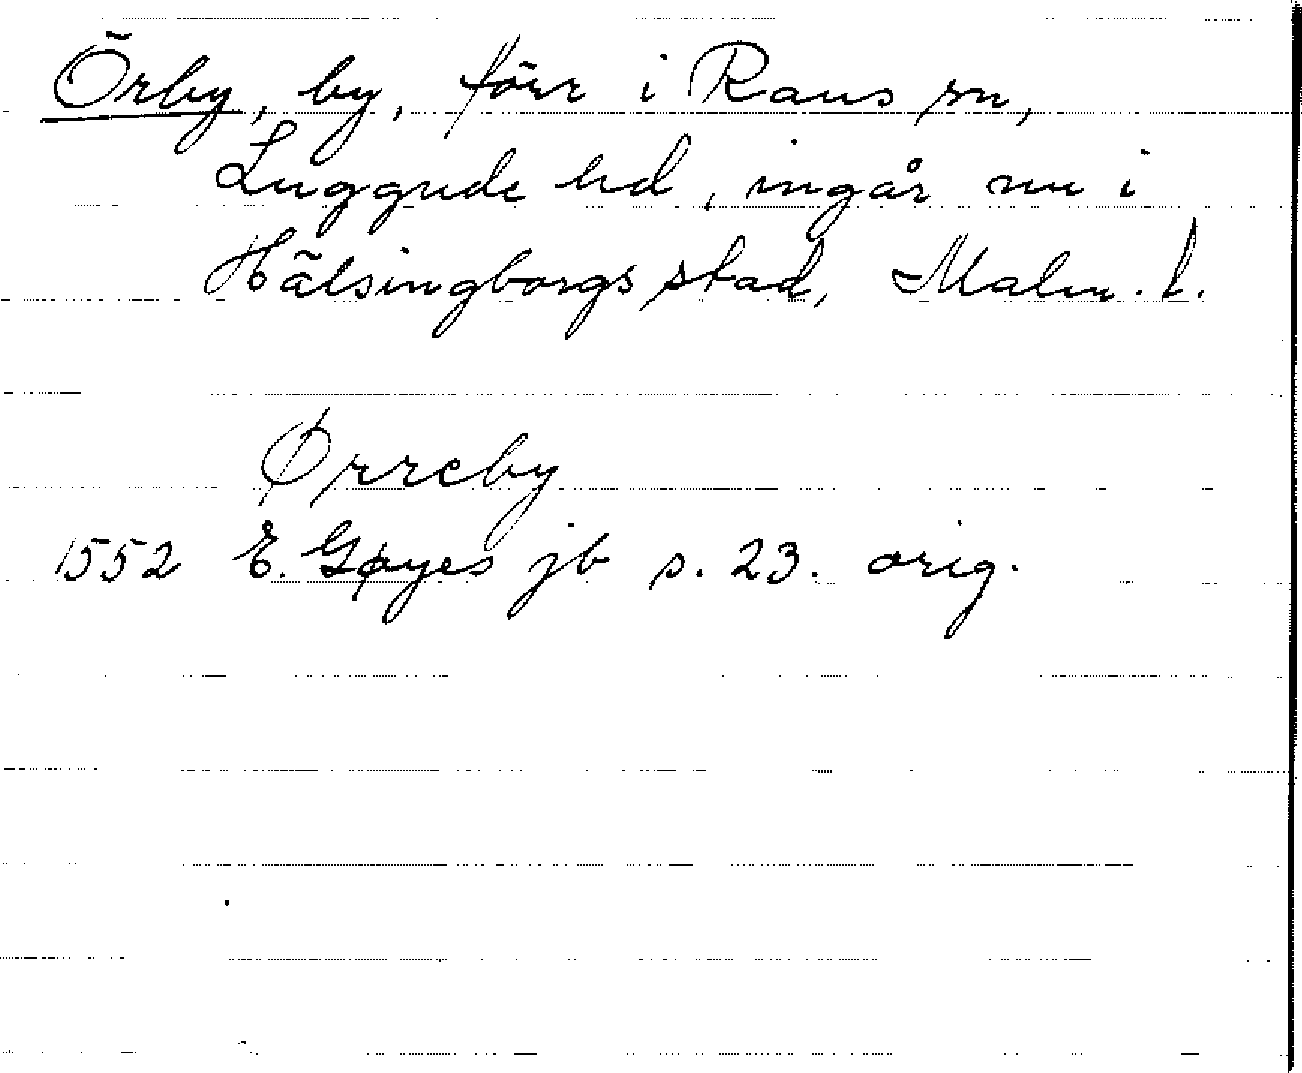 Örby, by, förr i Raus sn,
Luggude hd, ingår nu i
Hälsingborgs stad, Malm. l.
Ørreby
1552 E. Gøyes jb s. 23. orig.